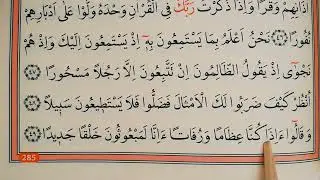 اٰذَانِهِمْ وَقْرًا وَاِذَا ذَكَرْتَ رَبَّكَ فِي الْقُرْاٰنِ وَحْدَهُ وَلَّوْا عَلٰٓى اَدْبَارِهِمْ
نُفُورًا ﴿٤٦﴾ نَحْنُ اَعْلَمُ بِمَا يَسْتَمِعُونَ بِهٖٓ اِذْ يَسْتَمِعُونَ اِلَيْكَ وَاِذْ هُمْ
نَجْوٰٓى اِذْ يَقُولُ الظَّالِمُونَ اِنْ تَتَّبِعُونَ اِلَّا رَجُلًا مَسْحُورًا ﴿٤٧﴾
اُنْظُرْ كَيْفَ ضَرَبُوا لَكَ الْاَمْثَالَ فَضَلُّوا فَلَا يَسْتَطِيعُونَ سَبِيلًا ﴿٤٨﴾
وَقَالُٓوا ءَاِذَا كُنَّا عِظَامًا وَرُفَاتًا ءَاِنَّا لَمَبْعُوثُونَ خَلْقًا جَدِيدًا ﴿٤٩﴾
285